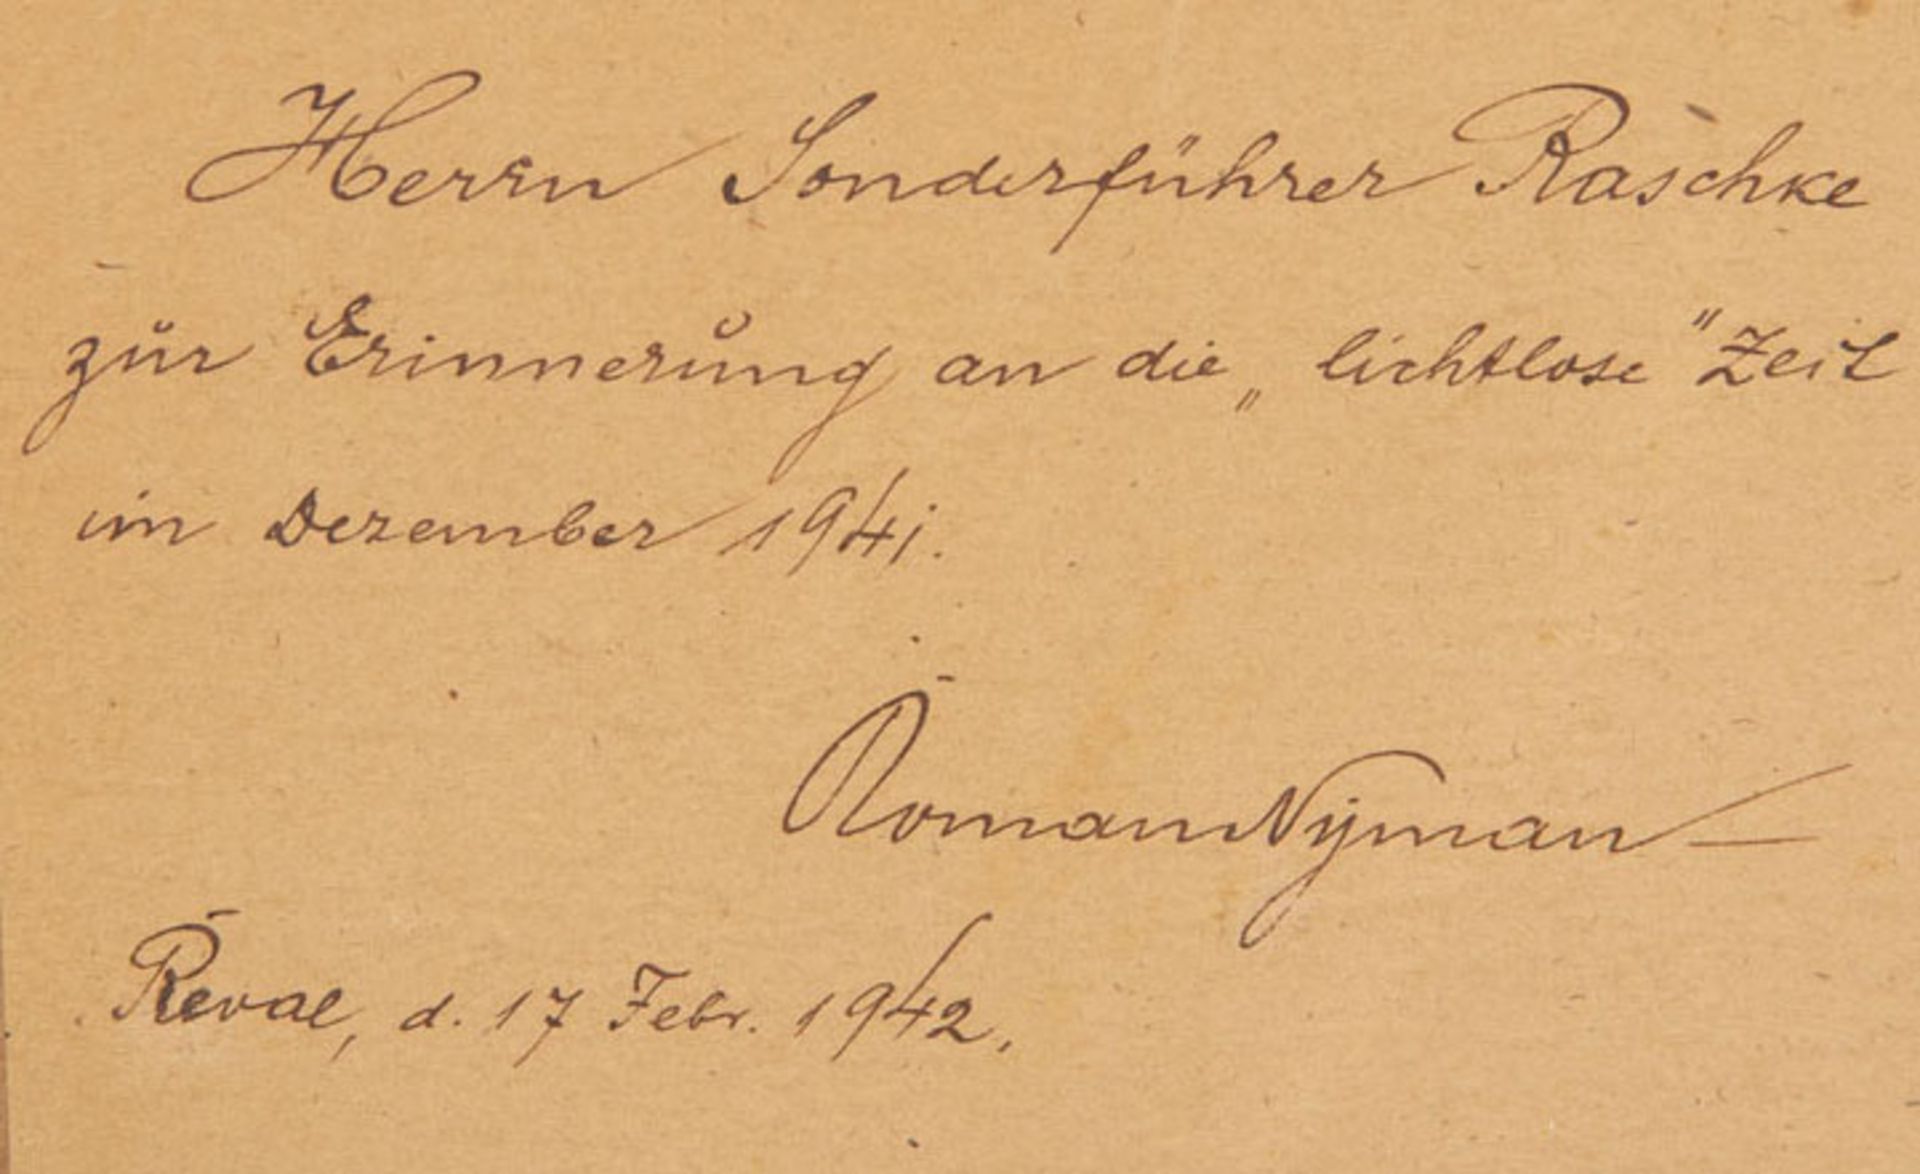 Herrn Sonderführer Raschke
zur Erinnerung an die „lichtlose" Zeit
im Dezember 1941.
Roman Nyman
Reval, d. 17 Febr. 1942.